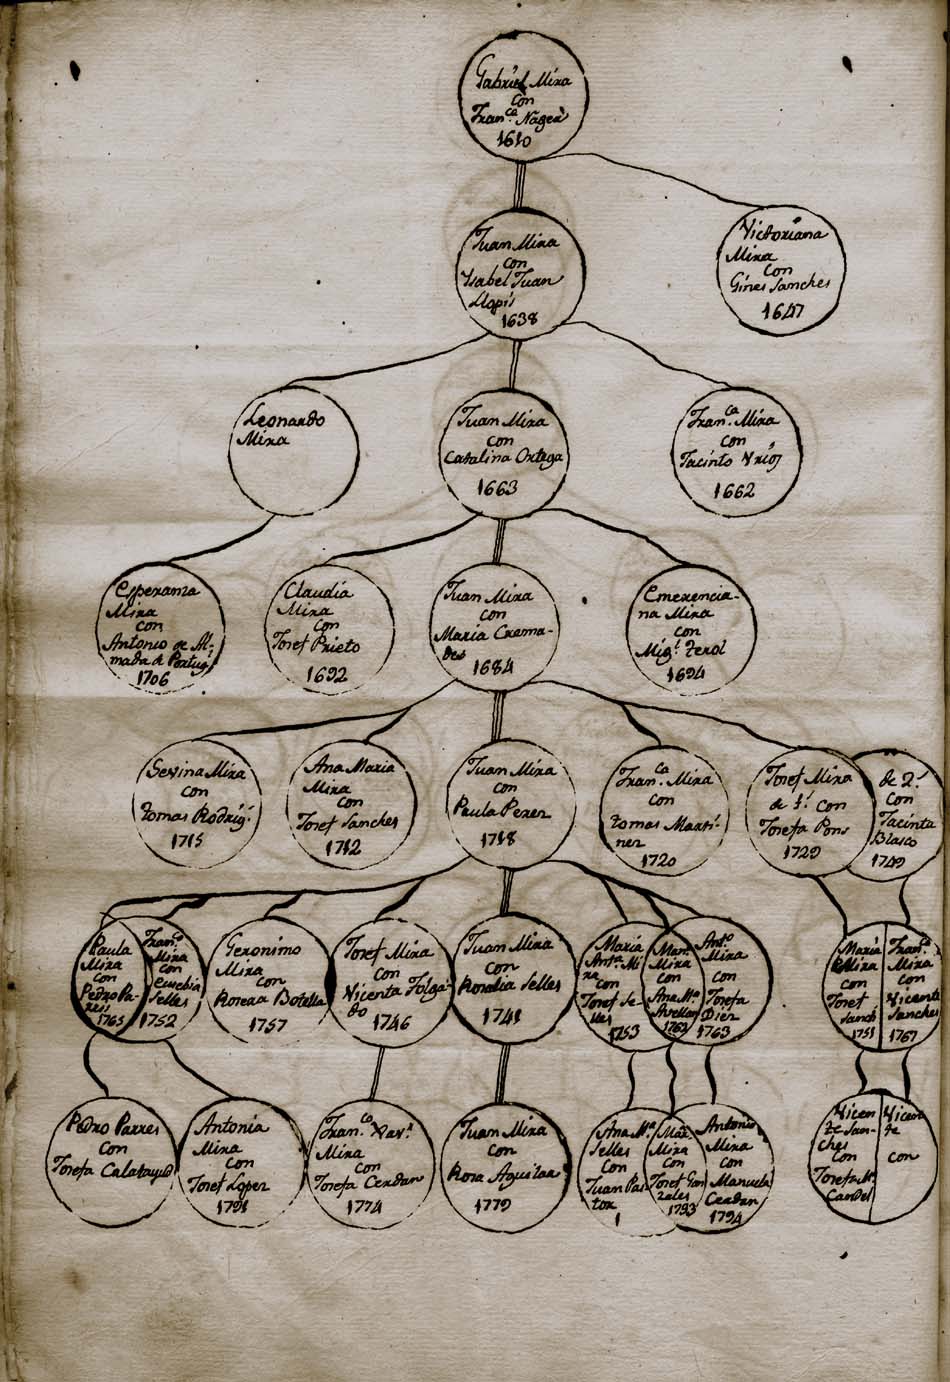 Gabriel Mira
con
Fran.ca Nager
1610
Juan Mira
con
Ysabel Juan
Llopis
1638
Victoriana
Mira
con
Gines Sanches
1647
Leonardo
Mira
Juan Mira
con
Catalina Ortega
1663
Fran.ca Mira
con
Jacinto
1662
Esperanza
Mira
con
Antonio de Al-
mada de Portug.l
1706
Claudia
Mira
con
Josef Prieto
1692
Juan Mira
con
Maria Crema-
des
1684
Emerencia-
na Mira
con
Mig.l Terol
1694
Sevina Mira
con
Tomas Rodrig.
1715
Ana Maria
Mira
con
Josef Sanches
1712
Juan Mira
con
Paula Perez
1718
Fran.ca Mira
con
Tomas Marti-
nez
1720
Josef Mira
de 1.ª con
Josefa Pons
1729
de 2.ª
con
Jacinta
Blasco
1749
Paula
Mira
con
Pedro Pa-
rres
1765
Fran.co
Mira
con
Eusebia
Selles
1752
Geronimo
Mira
con
Rosera Botella
1757
Josef Mira
con
Vicenta Folga-
do
1746
Juan Mira
con
Rosalia Selles
1741
Maria
Ant.a Mi
ra
con
Josef Se-
lles
1753
Man.l
Mira
con
Ana M.a
Avellan
1762
Ant.o
Mira
con
Josefa
Diez
1763
Maria
Mira
con
Josef
Sanch
1751
Fran.co
Mira
con
Vicenta
Sanches
1767
Pedro Parres
con
Josefa Calatayud
Antonia
Mira
con
Josef Lopez
1791
Fran.co Xav.r
Mira
con
Josefa Cerdan
1774
Juan Mira
con
Rosa Aguilar
1779
Ana M.a
Selles
con
Juan Pas-
tor
1
Mira
con
Josef Gon
zales
1793
Antonio
Mira
con
Manuela
Cerdan
1794
Vicen
te San-
ches
con
Josefa M.a
Candel
Vicen
te
con